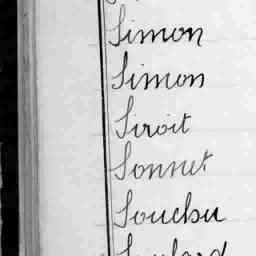 Simon
Simon
Siroit
Sonnet
Souchu
Soulard